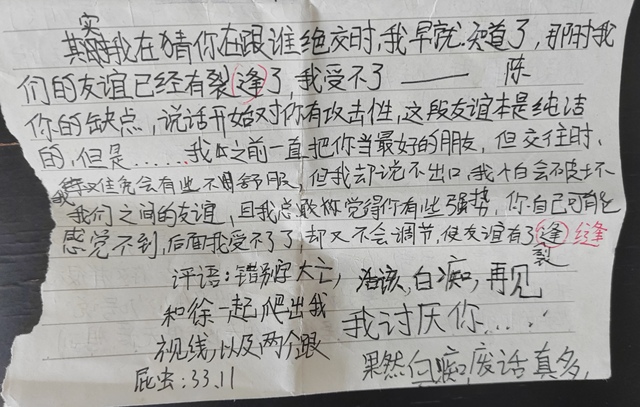 其实我在猜你在跟谁绝交时,我早就知道了,那时我
们的友谊已经有裂逢了,我受不了——陈
你的缺点,说话开始对你有攻击性,这段友谊本是纯洁
的,但是……我之前一直把你当最好的朋友,但交往时,
会有些不舒服,但我却说不出口,我怕会破坏
我们之间的友谊,且我总觉得你有些强势,你自己可能
感觉不到,后面我受不了了,却又不会调节,使友谊有了逢 缝
裂
评语:错别字太多,活该,白痴,再见
和徐一起爬出我
视线,以及两个跟
屁虫:33.11
我讨厌你.....
果然白痴,废话真多,